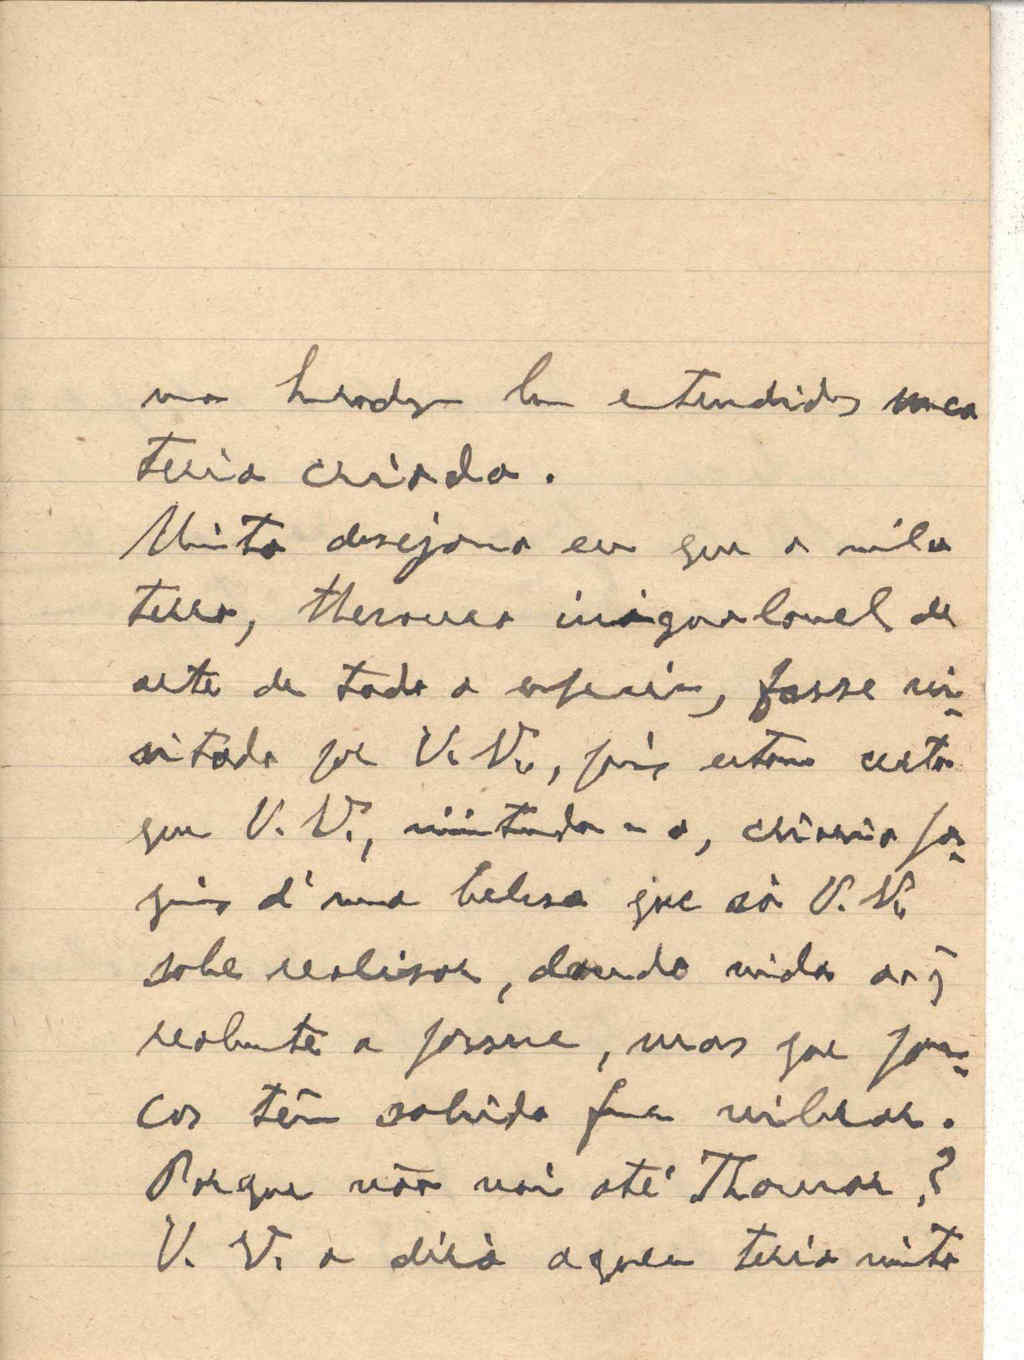 entendidos nunca
teria criado.
Muito desejava eu que a minha
terra, thesouro inegualavel de
arte de toda a especie, fosse vi-
sitada por V. V., pois estou certo
que V. V., visitando-a, criaria pa-
ginas d'uma beleza que só V. V.
sabe realisar, dando vida ao q
realmente a possue, mas que pou-
cos têm sabido fazer vibrar.
Porque não vai até Thomar?
V. V. a dirá aquem teria muito